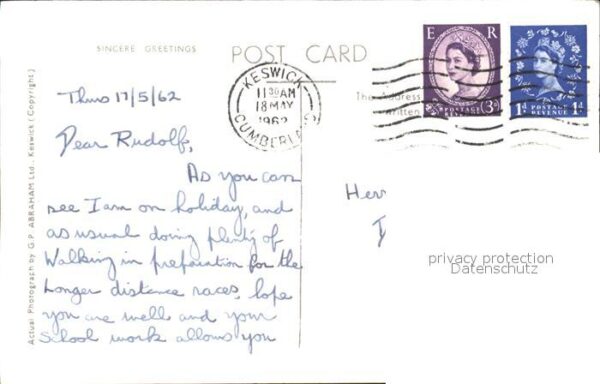 SINCERE GREETINGS
POST CARD
E R
POSTAGE
REVENUE
3D
POSTAGE
REVENUE
1D 1D
KESWICK
11 30 AM
18 MAY
1962
CUMBERLAND
The Address
written
Thurs 17/5/62
Dear Rudolf,
As you can
see I am on holiday, and
as usual doing plenty of
Walking in preparation for the
Longer distance races, hope
you are well and your
School work allows you
Herr
privacy protection
Datenschutz
Actual Photograph by G.P. ABRAHAM Ltd., Keswick (Copyright)